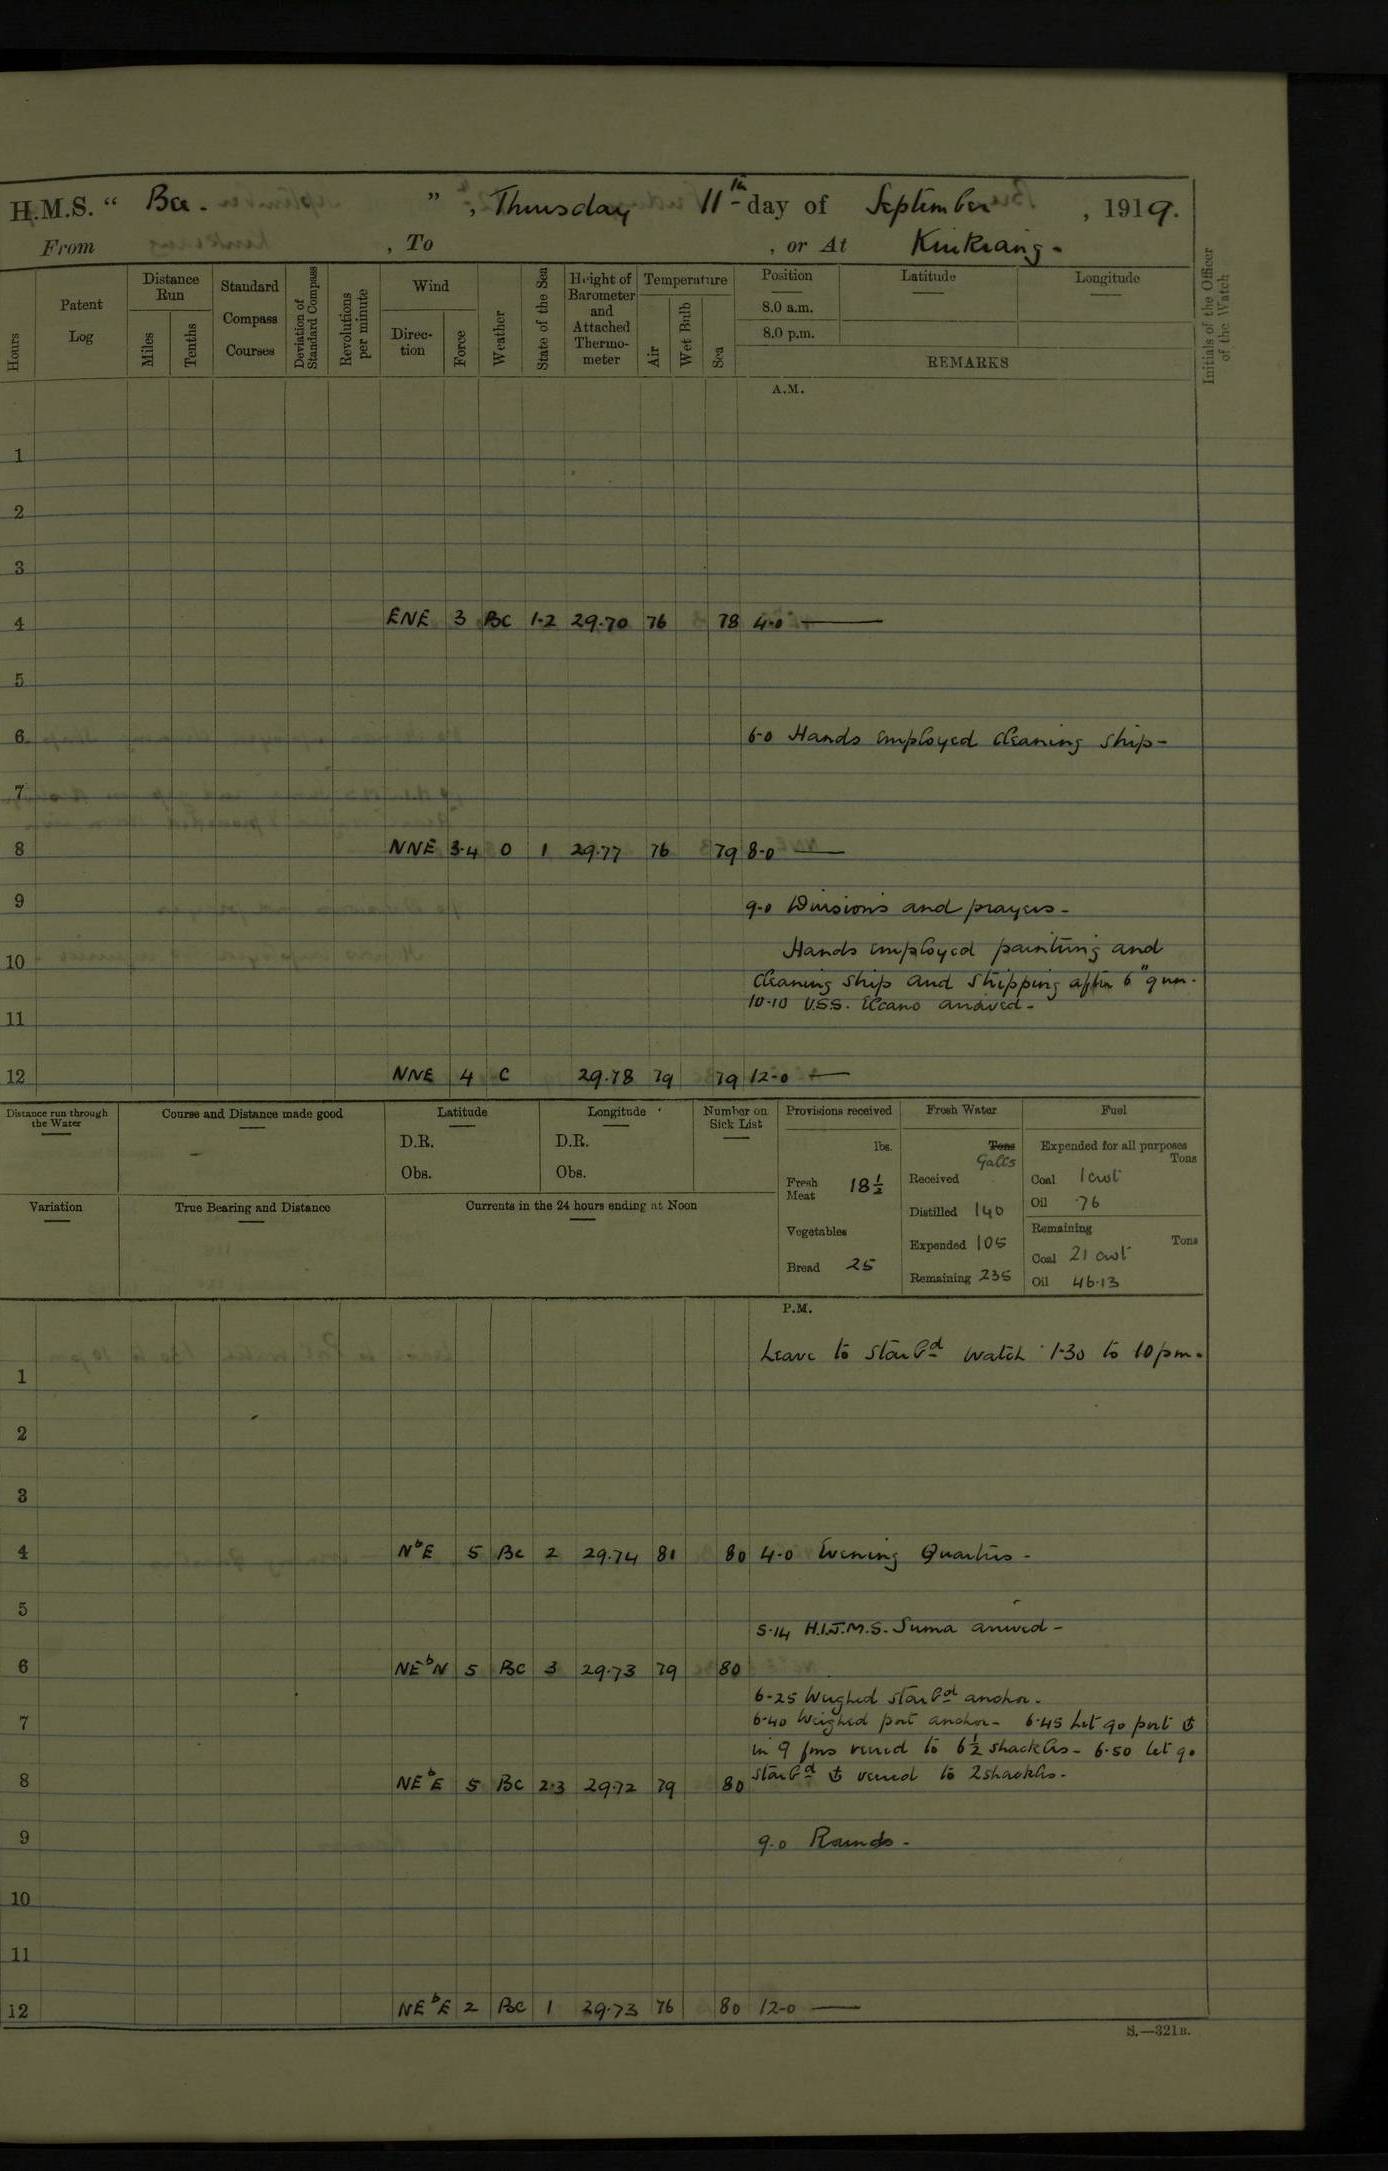 H.M.S. “ Bee. ”, Thursday 11th day of September, 1919.
From , To , or At Kiukiang -
Hours
Patent Log
Distance Run
Miles
Tenths
Standard Compass Courses
Deviation of Standard Compass
Revolutions per minute
Wind
Direction
Force
Weather
State of the Sea
Height of Barometer and Attached Thermometer
Temperature
Air
Wet Bulb
Sea
Position
8.0 a.m.
8.0 p.m.
Latitude
Longitude
REMARKS
Initials of the Officer of the Watch
A.M.
1
2
3
4 ENE 3 BC 1·2 29·70 76 78 4·0 ———
5
6 6·0 Hands employed cleaning ship -
7
8 NNE 3·4 O 1 29·77 76 79 8·0 ——
9 9·0 Divisions and prayers -
Hands employed painting and
10 cleaning ship and shipping after 6" gun.
10·10 U.S.S. Elcano arrived -
11
12 NNE 4 C 29·78 79 79 12·0 ——
Distance run through the Water
Course and Distance made good
Latitude
D.R.
Obs.
Longitude
D.R.
Obs.
Number on Sick List
Provisions received
lbs.
Fresh Meat 18½
Vegetables
Bread 25
Fresh Water
Tons
Galls
Received
Distilled 140
Expended 105
Remaining 235
Fuel
Expended for all purposes
Tons
Coal 1 cwt
Oil ·76
Remaining
Tons
Coal 21 cwt
Oil 46·13
Variation
True Bearing and Distance
Currents in the 24 hours ending at Noon
P.M.
Leave to starbd watch 1·30 to 10 pm.
1
2
3
4 NbE 5 BC 2 29·74 81 80 4·0 Evening Quarters -
5
5·14 H.I.J.M.S. Suma arrived -
6 NEbN 5 BC 3 29·73 79 80
6·25 Weighed starbd anchor.
7 6·40 Weighed port anchor - 6·45 Let go port ⚓
in 9 fms veered to 6½ shackles - 6·50 let go
starbd ⚓ veered to 2 shackles -
8 NEbE 5 BC 2·3 29·72 79 80
9 9·0 Rounds -
10
11
12 NEbE 2 BC 1 29·73 76 80 12·0 ——
S.—321B.